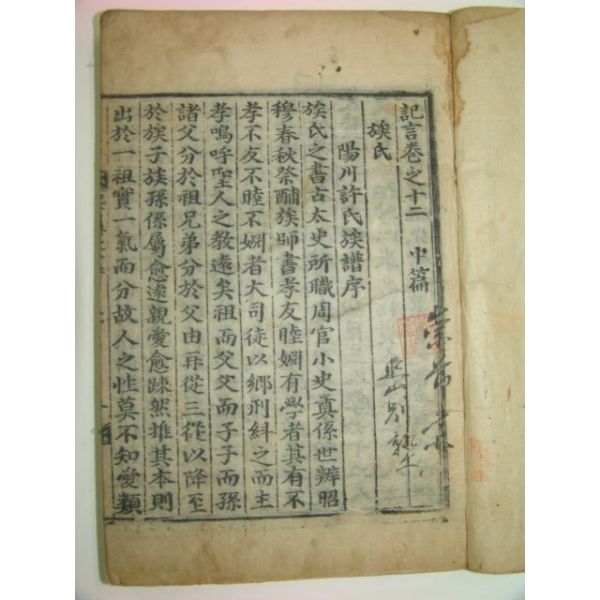 記言卷之十二 中篇
族氏
陽川許氏族譜序
族氏之書古太史所職周官小史奠係世辨昭
穆春秋祭酺族師書孝友睦婣有學者其有不
孝不友不睦不婣者大司徒以鄕刑糾之而主
孝嗚呼聖人之教遠矣祖而父父而子子而孫
諸父分於祖兄弟分於父由再從三從以降至
於族子族孫係屬愈遠親愛愈踈然推其本則
出於一祖實一氣而分故人之性莫不知愛類